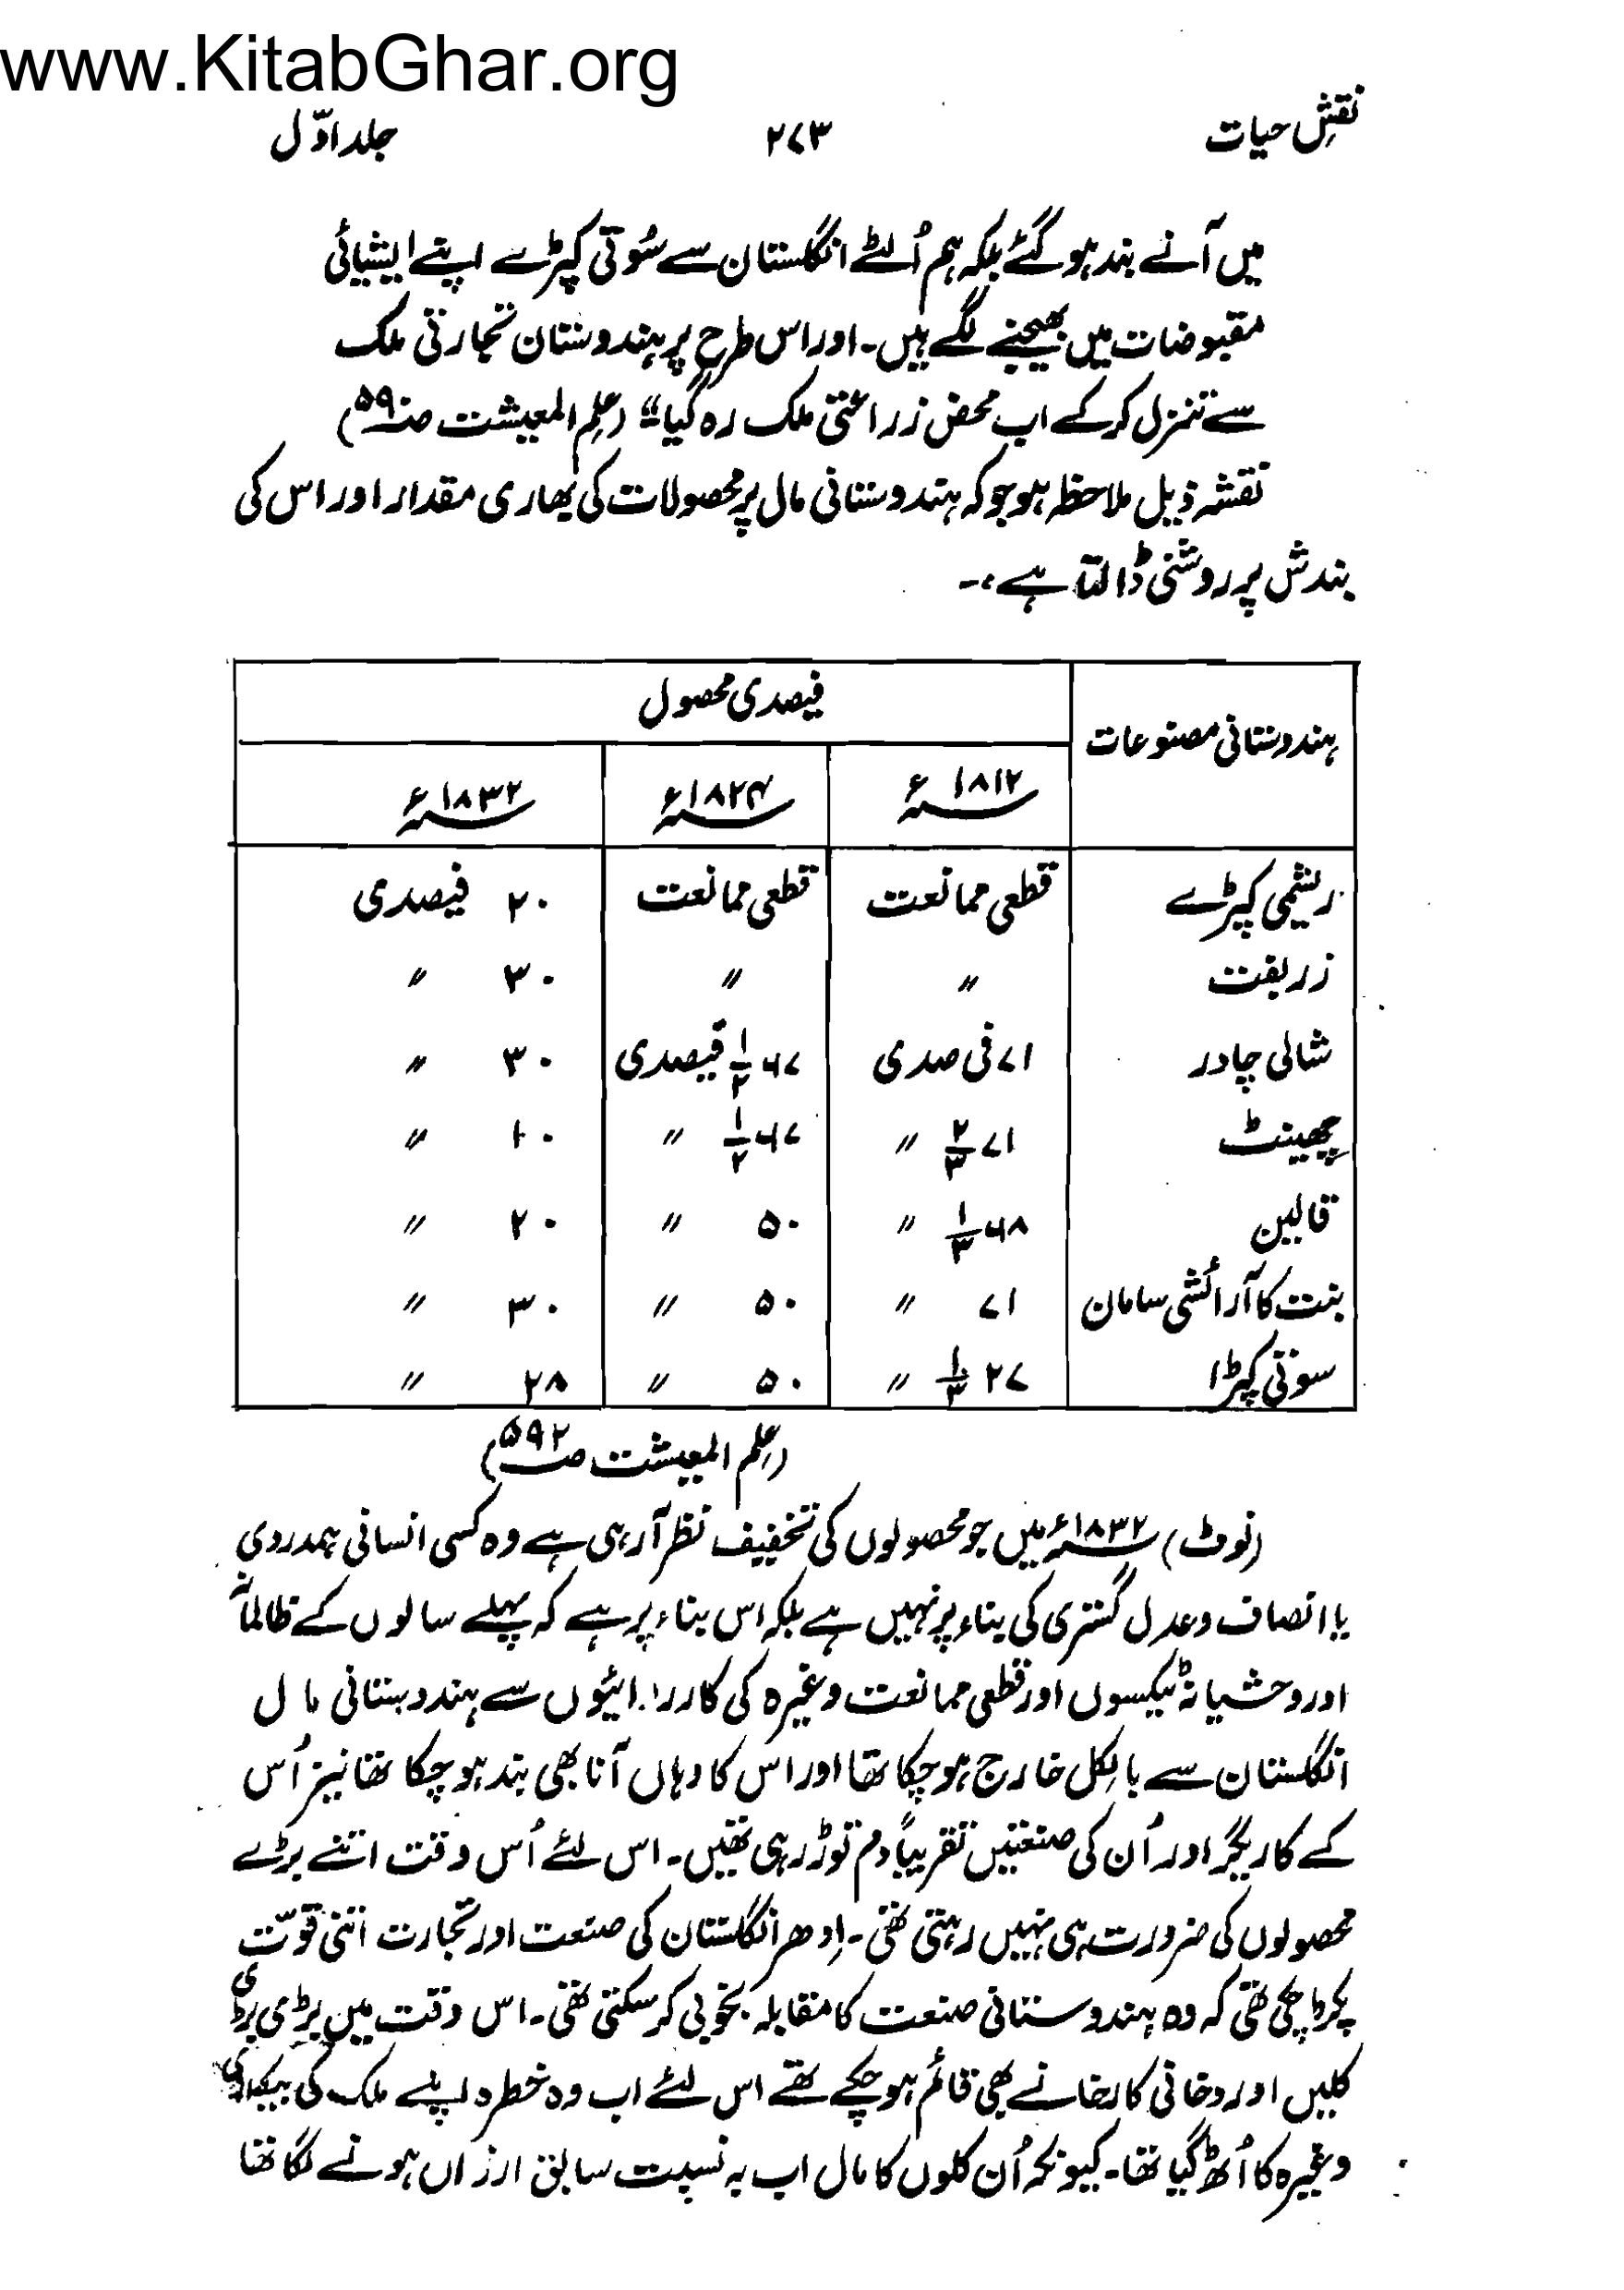 www.KitabGhar.org
نقشِ حیات ۲۷۳ جلد اوّل
میں آنے بند ہو گئے بلکہ ہم اُلٹے انگلستان سے سُوتی کپڑے اپنے ایشیائی
مقبوضات میں بھیجنے لگے ہیں۔ اور اس طرح پر ہندوستان تجارتی ملک
سے تنزل کر کے اب محض زراعتی ملک رہ گیا“ (علم المعیشت صـ۵۹)
نقشہ ذیل ملاحظہ ہو جو کہ ہندوستانی مال پر محصولات کی بھاری مقدار اور اس کی
بندش پر روشنی ڈالتا ہے :۔
ہندوستانی مصنوعات فیصدی محصول
۱۸۱۲ء ۱۸۲۴ء ۱۸۳۲ء
ریشمی کپڑے قطعی ممانعت قطعی ممانعت ۲۰ فیصدی
زربفت 〃 〃 ۳۰ 〃
شالی چادر ۷۱ فی صدی ۶۷ ۱/۲ فیصدی ۳۰ 〃
چھینٹ ۷۱ ۲/۳ 〃 ۶۷ ۱/۲ 〃 ۱۰ 〃
قالین ۶۸ ۱/۳ 〃 ۵۰ 〃 ۲۰ 〃
بنت کا آرائشی سامان ۷۱ 〃 ۵۰ 〃 ۳۰ 〃
سوتی کپڑا ۲۷ ۱/۳ 〃 ۵۰ 〃 ۲۸ 〃
(علم المعیشت صـ۵۹۲)
(نوٹ) ۱۸۳۲ء میں جو محصولوں کی تخفیف نظر آرہی ہے وہ کسی انسانی ہمدردی
یا انصاف و عدل گستری کی بناء پر نہیں ہے بلکہ اس بناء پر ہے کہ پہلے سالوں کے ظالمانہ
اور وحشیانہ ٹیکسوں اور قطعی ممانعت وغیرہ کی کارروائیوں سے ہندوستانی مال
انگلستان سے بالکل خارج ہو چکا تھا اور اس کا وہاں آنا بھی بند ہو چکا تھا نیز اُس
کے کاریگر اور اُن کی صنعتیں تقریباً دم توڑ رہی تھیں۔ اس لئے اُس وقت اتنے بڑے
محصولوں کی ضرورت ہی نہیں رہتی تھی۔ اِدھر انگلستان کی صنعت اور تجارت اتنی قوّت
پکڑ چکی تھی کہ وہ ہندوستانی صنعت کا مقابلہ بخوبی کر سکتی تھی۔ اس وقت میں بڑی بڑی
کلیں اور دخانی کارخانے بھی قائم ہو چکے تھے اس لئے اب وہ خطرہ اپنے ملک کی بیکاری
وغیرہ کا اُٹھ گیا تھا۔ کیونکہ اُن کلوں کا مال اب بہ نسبت سابق ارزاں ہونے لگا تھا